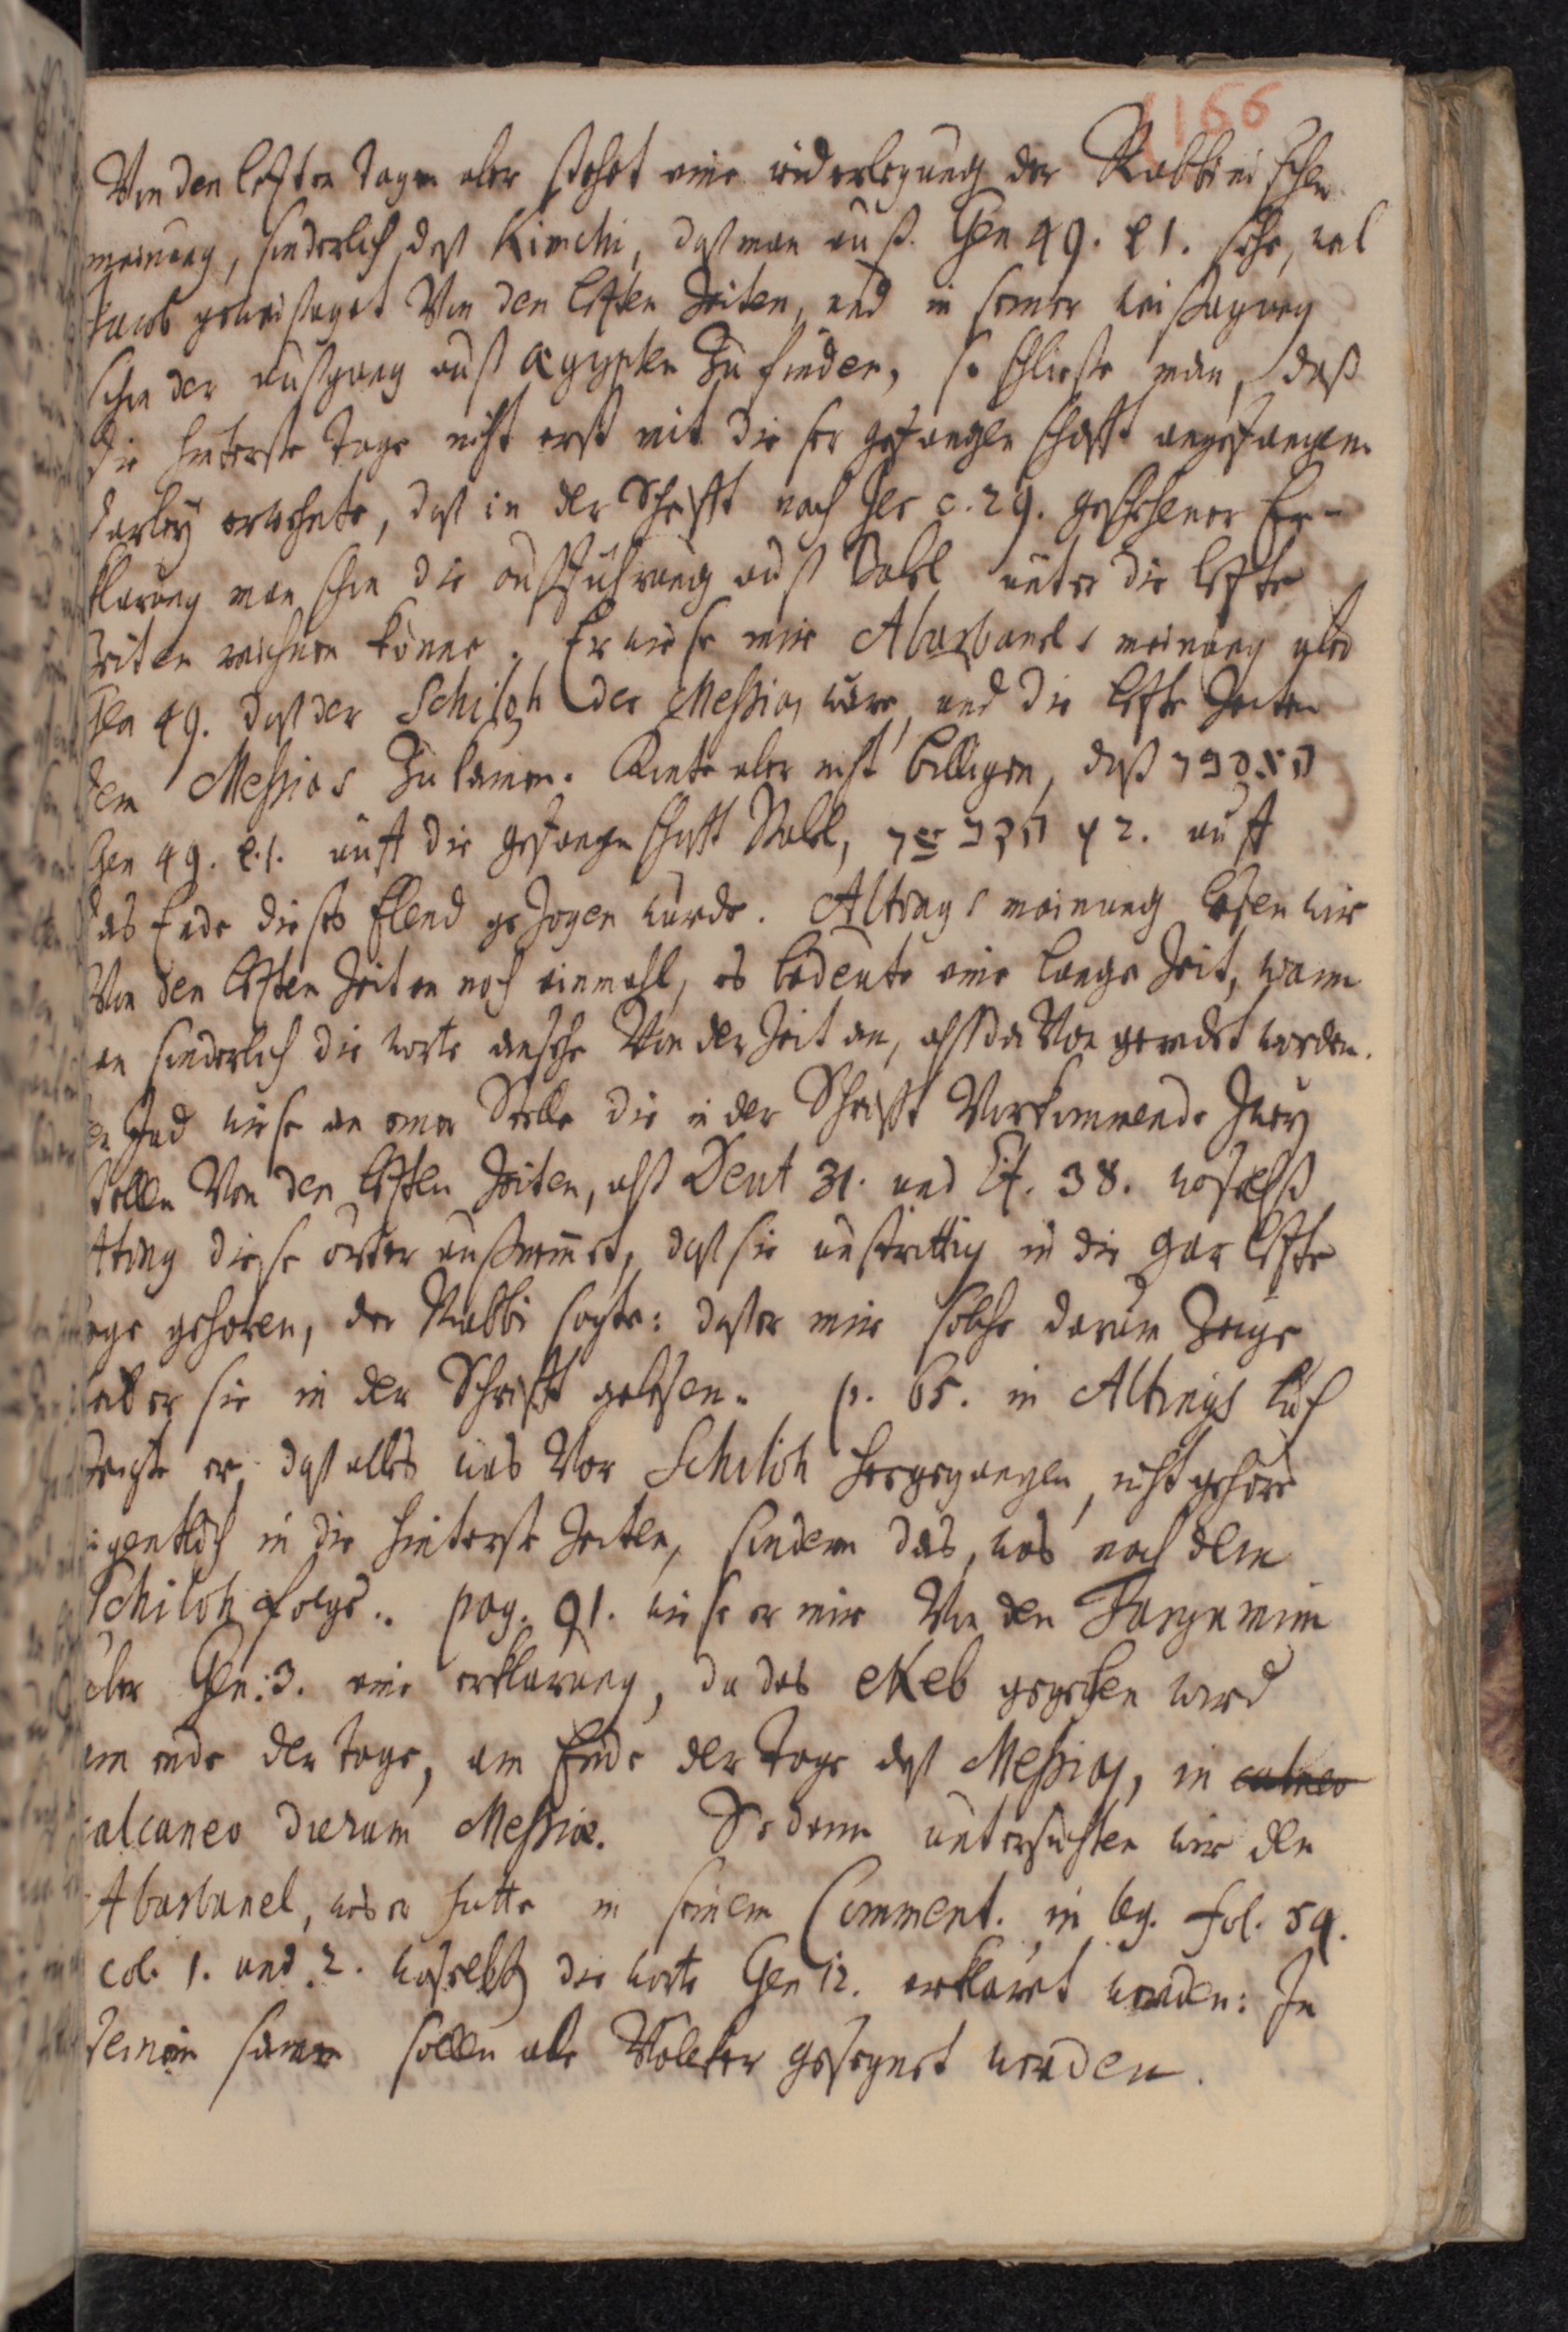 166
Von den letzten tagen aber stehet eine widerlegung der Rabbinischen
meinung, sonderlich deß Kimchi, daß man auß Gen 49. v 1. sehe, weil
Jacob geweissaget Von den letzten Zeiten, und in seiner weissagung
schon der außgang auß Ægypten Zu finden, so schließe man, daß
die hinterste tage nicht erst mit dieser gefangenschafft angefangen.
darbey erwehnte, daß in der Schrifft nach Jer c. 29. geschehener Er-
klarung man schon die außführung auß Babel unter die letzte
Zeiten rechnen könne. Er wiese mir Abarbanels meinung über
Gen 49. daß der Schiloh der Messias wäre, und die letzte Zeiten
dem Messias Zu kämen. Konte aber nicht billigen, daß
Gen 49. v. 1. auff die gefangenschafft Babel, v 2. auff
das Ende dieses Elend gezogen würde. Altings meinung lasen wir
Von den letzten Zeiten noch einmahl, es bedeute eine lange Zeit, wann
man sonderlich die worte ansehe Von der Zeit an, alß da Von geredet worden.
Der Jud wiese an einer Stelle die in der Schrifft Vorkommende Zwey
Stellen Von den letzten Zeiten, alß Deut 31. und Ez. 38. woselbst
Alting diese örter außnimmt, daß sie unstrittig in die gar letzte
tage gehören, der Rabbi sagte: daß er mir solche darum Zeige
weil er sie in der Schrifft gelesen. p. 65. in Altings buch
Zeigte er, daß alles was Vor Schiloh hergegangen, nicht gehöre
eigentlich in die hinterste Zeiten, sondern das, was nach dem
Schiloh folge. pag. 91. wiese er mir Von den Targumim
über Gen: 3. eine erklarung, da das ekeb gegeben wird
am ende der tage, am Ende der tage deß Messias, in calneo
calcaneo dierum Messiæ. Sodann untersuchten wir den
Abarbanel, was er hatte in seinem Comment. in leg. fol. 59.
col. 1. und 2. woselbst die worte Gen 12. erklärt werden: In
deinem samen sollen alle Völcker gesegnet werden.